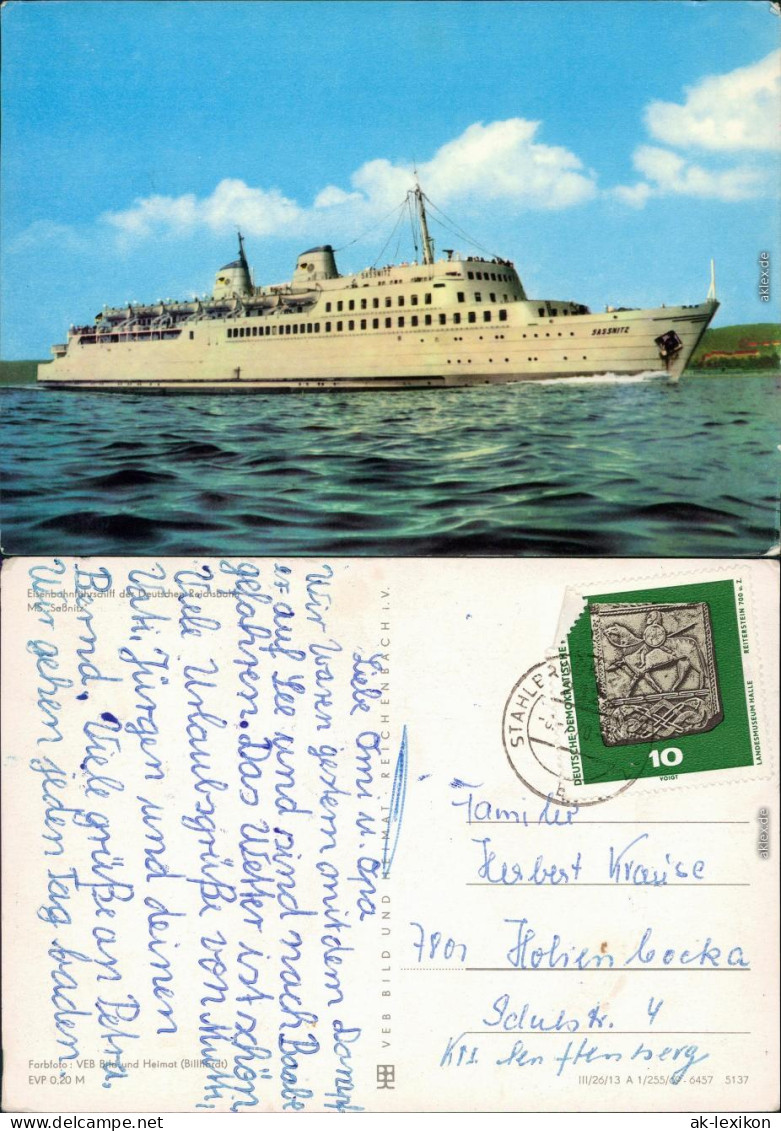 SASSNITZ
SASSNITZ
aklex.de
Eisenbahnfährschiff der Deutschen Reichsbahn
MS „Saßnitz"
Liebe Omi u. Opa
Wir waren gestern mit dem Dampf
er auf See und sind nach Baabe
gefahren. Das Wetter ist schön
Viele Urlaubsgrüße von Mutti,
Vati, Jürgen und deinen
Bernd, Viele grüße an Petra,
Wir gehen jeden Tag baden
Farbfoto: VEB Bild und Heimat (Billhardt)
EVP 0,20 M
VEB BILD UND HEIMAT · REICHENBACH I.V.
STAHLBR
DEUTSCHE DEMOKRATISCHE
REITERSTEIN 700 n. Z.
LANDESMUSEUM HALLE
10
VOIGT
Familie
Herbert Krause
7801 Hohenbocka
Schulstr. 4
Krs. Senftenberg
III/26/13 A 1/255/69 - 6457 5137
aklex.de
ak-lexikon